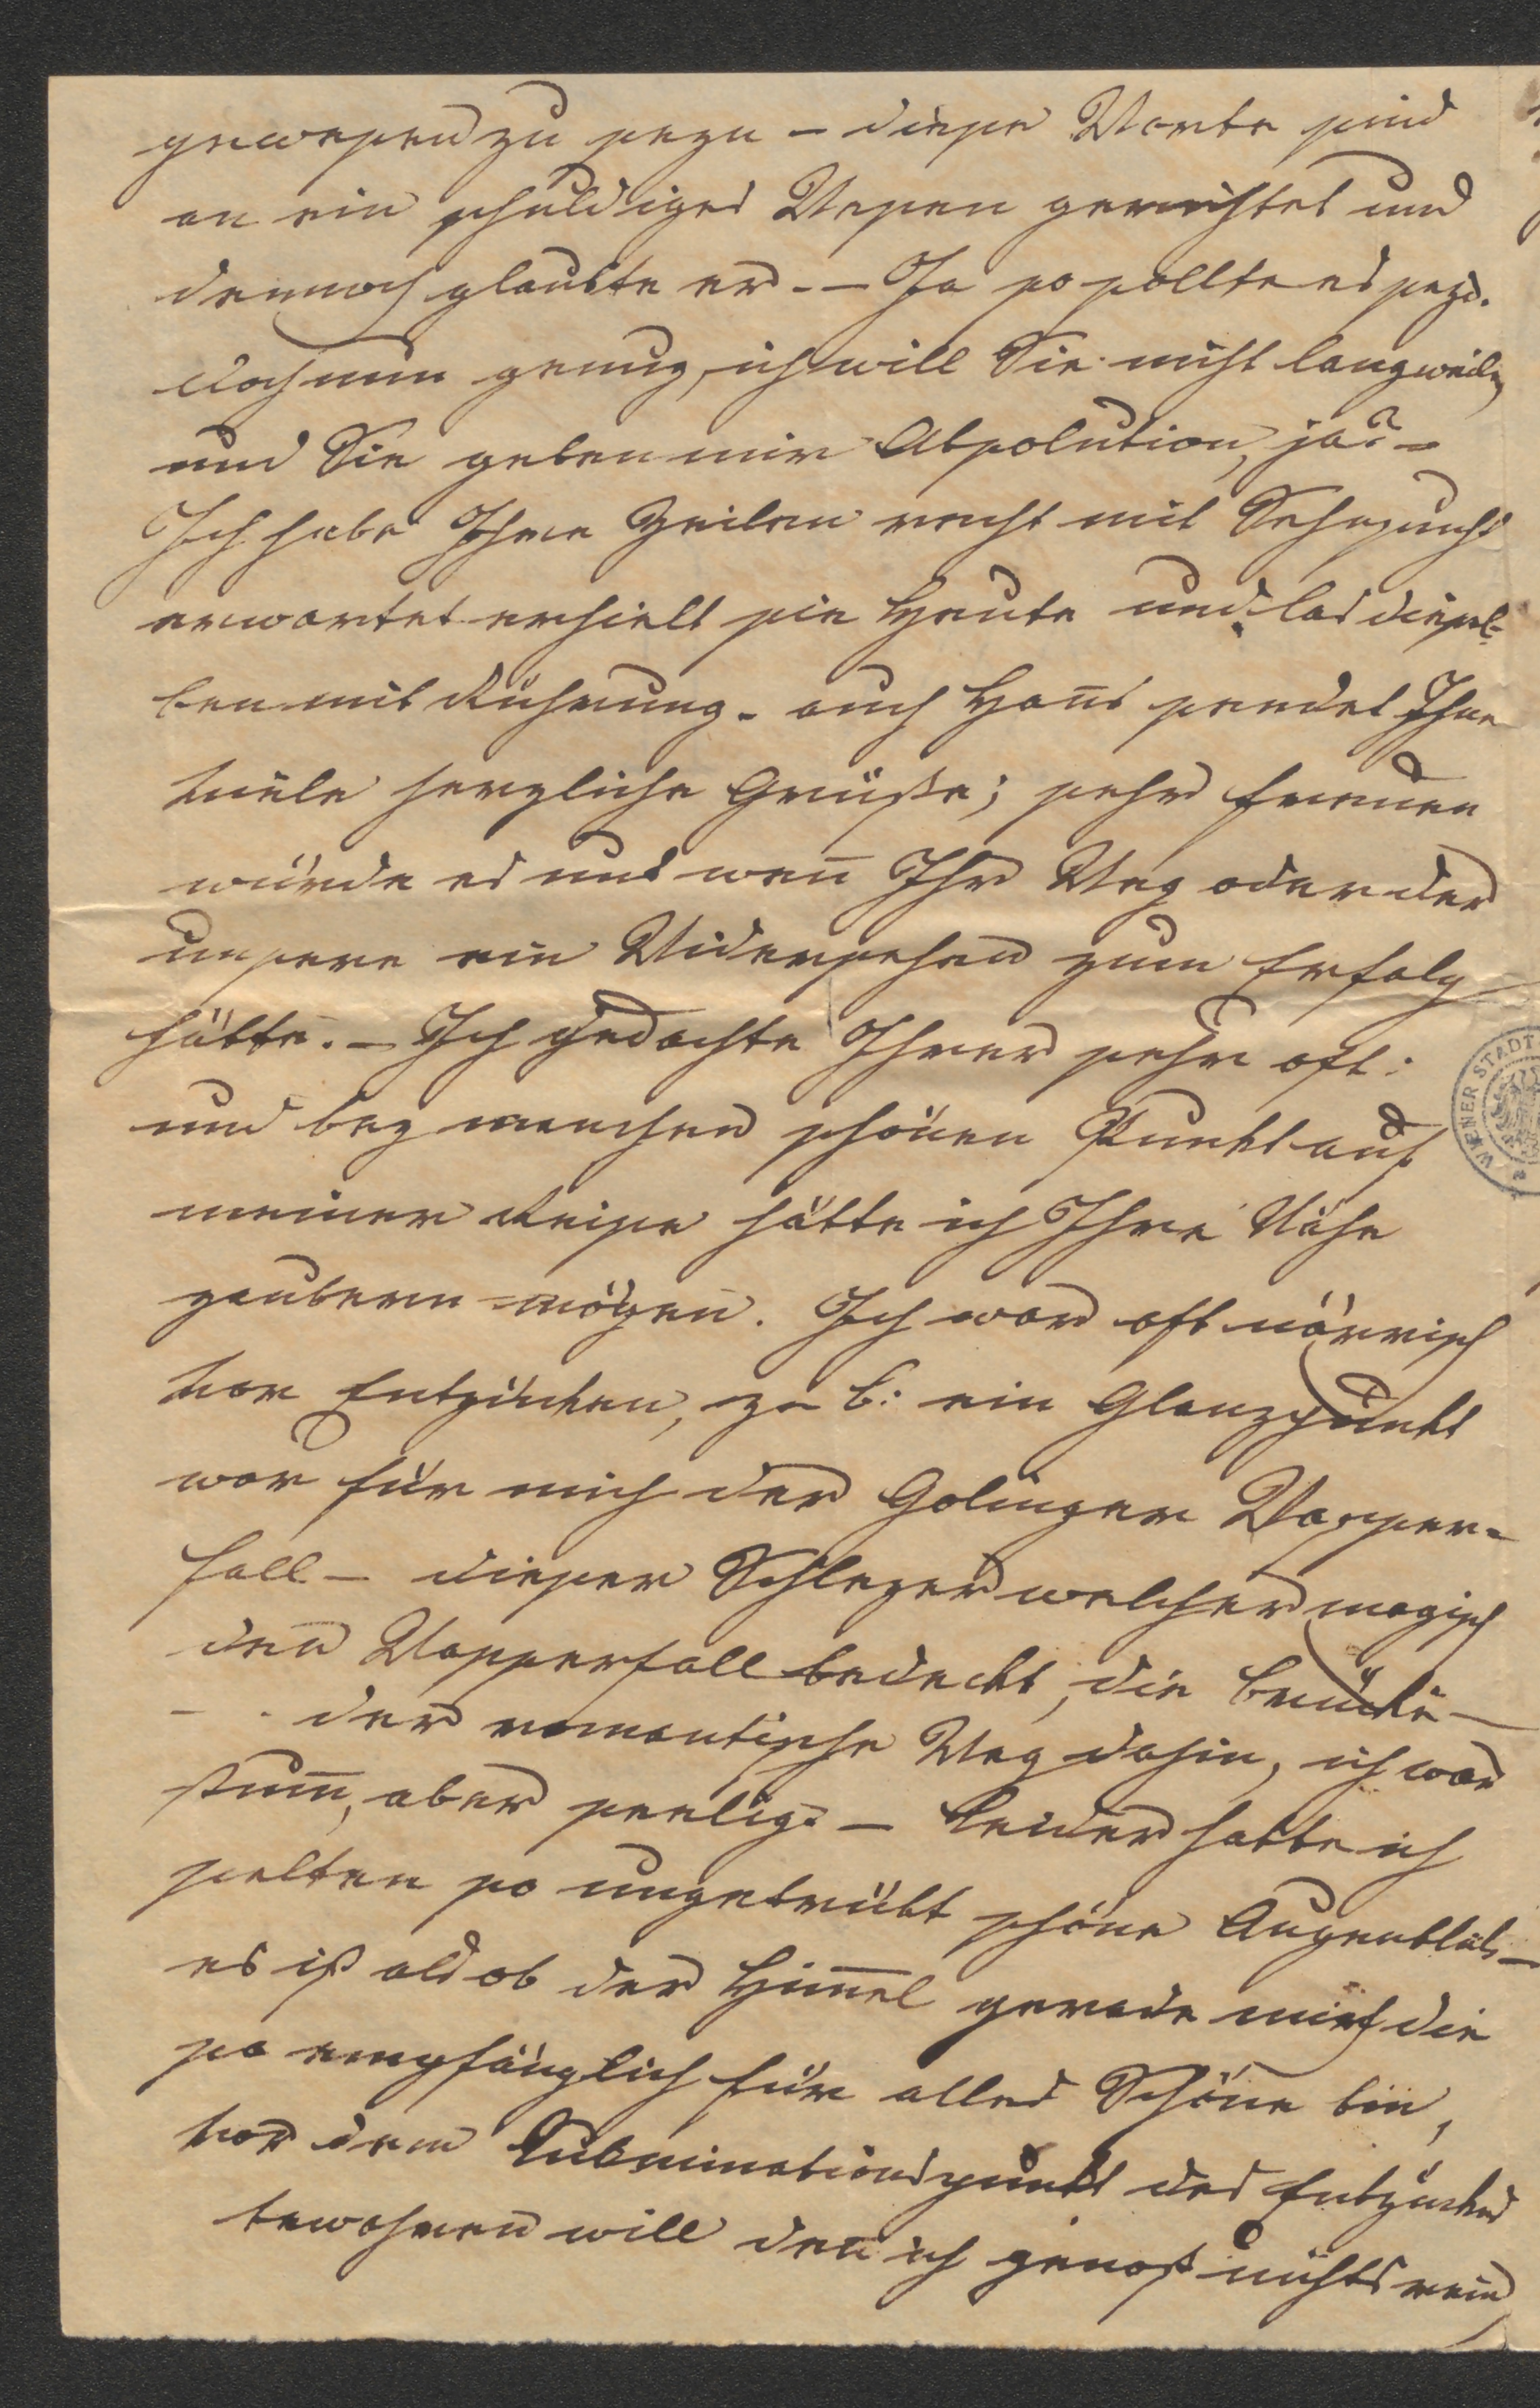 gewesen zu seyn – diese Worte sind
an ein schuldiges Wesen gerichtet und
dennoch glaubte er – – Ja so sollte es seyn.
doch nun genug, ich will Sie nicht langweilen
und Sie geben mir Absolution, ja? –
Ich habe Ihre Zeilen recht mit Sehnsucht
erwartet erhielt sie Heute und las diesel-
ben mit Rührung. auch Hans sendet Ihnen
viele herzliche Grüße; sehr freuen
würde es uns wen̄ Ihr Weg oder der
unsere ein Widersehen zum Erfolg
hätte. – Ich gedachte Ihrer sehr oft:
und bey manchen schönen Punkt auf
meiner Reise hätte ich Ihre Nähe
zaubern mögen. Ich war oft närrisch
vor Entzücken, z. B: ein Glanzpunkt
war für mich der Golinger Wasser-
fall – dieser Schleyer welcher magisch
den Wasserfall bedeckt, die Brücke –
– . der romantische Weg dahin, ich war
stum̄, aber seelig. – Leider hatte ich
selten so ungetrübt schöne Augenblicke –
es ist als ob der Him̄el gerade mich die
so empfänglich für alles Schöne bin,
vor dem Culminationspunkt des Entzückens
bewahren will den̄ ich genoß nichts rein
WIENER STADT-